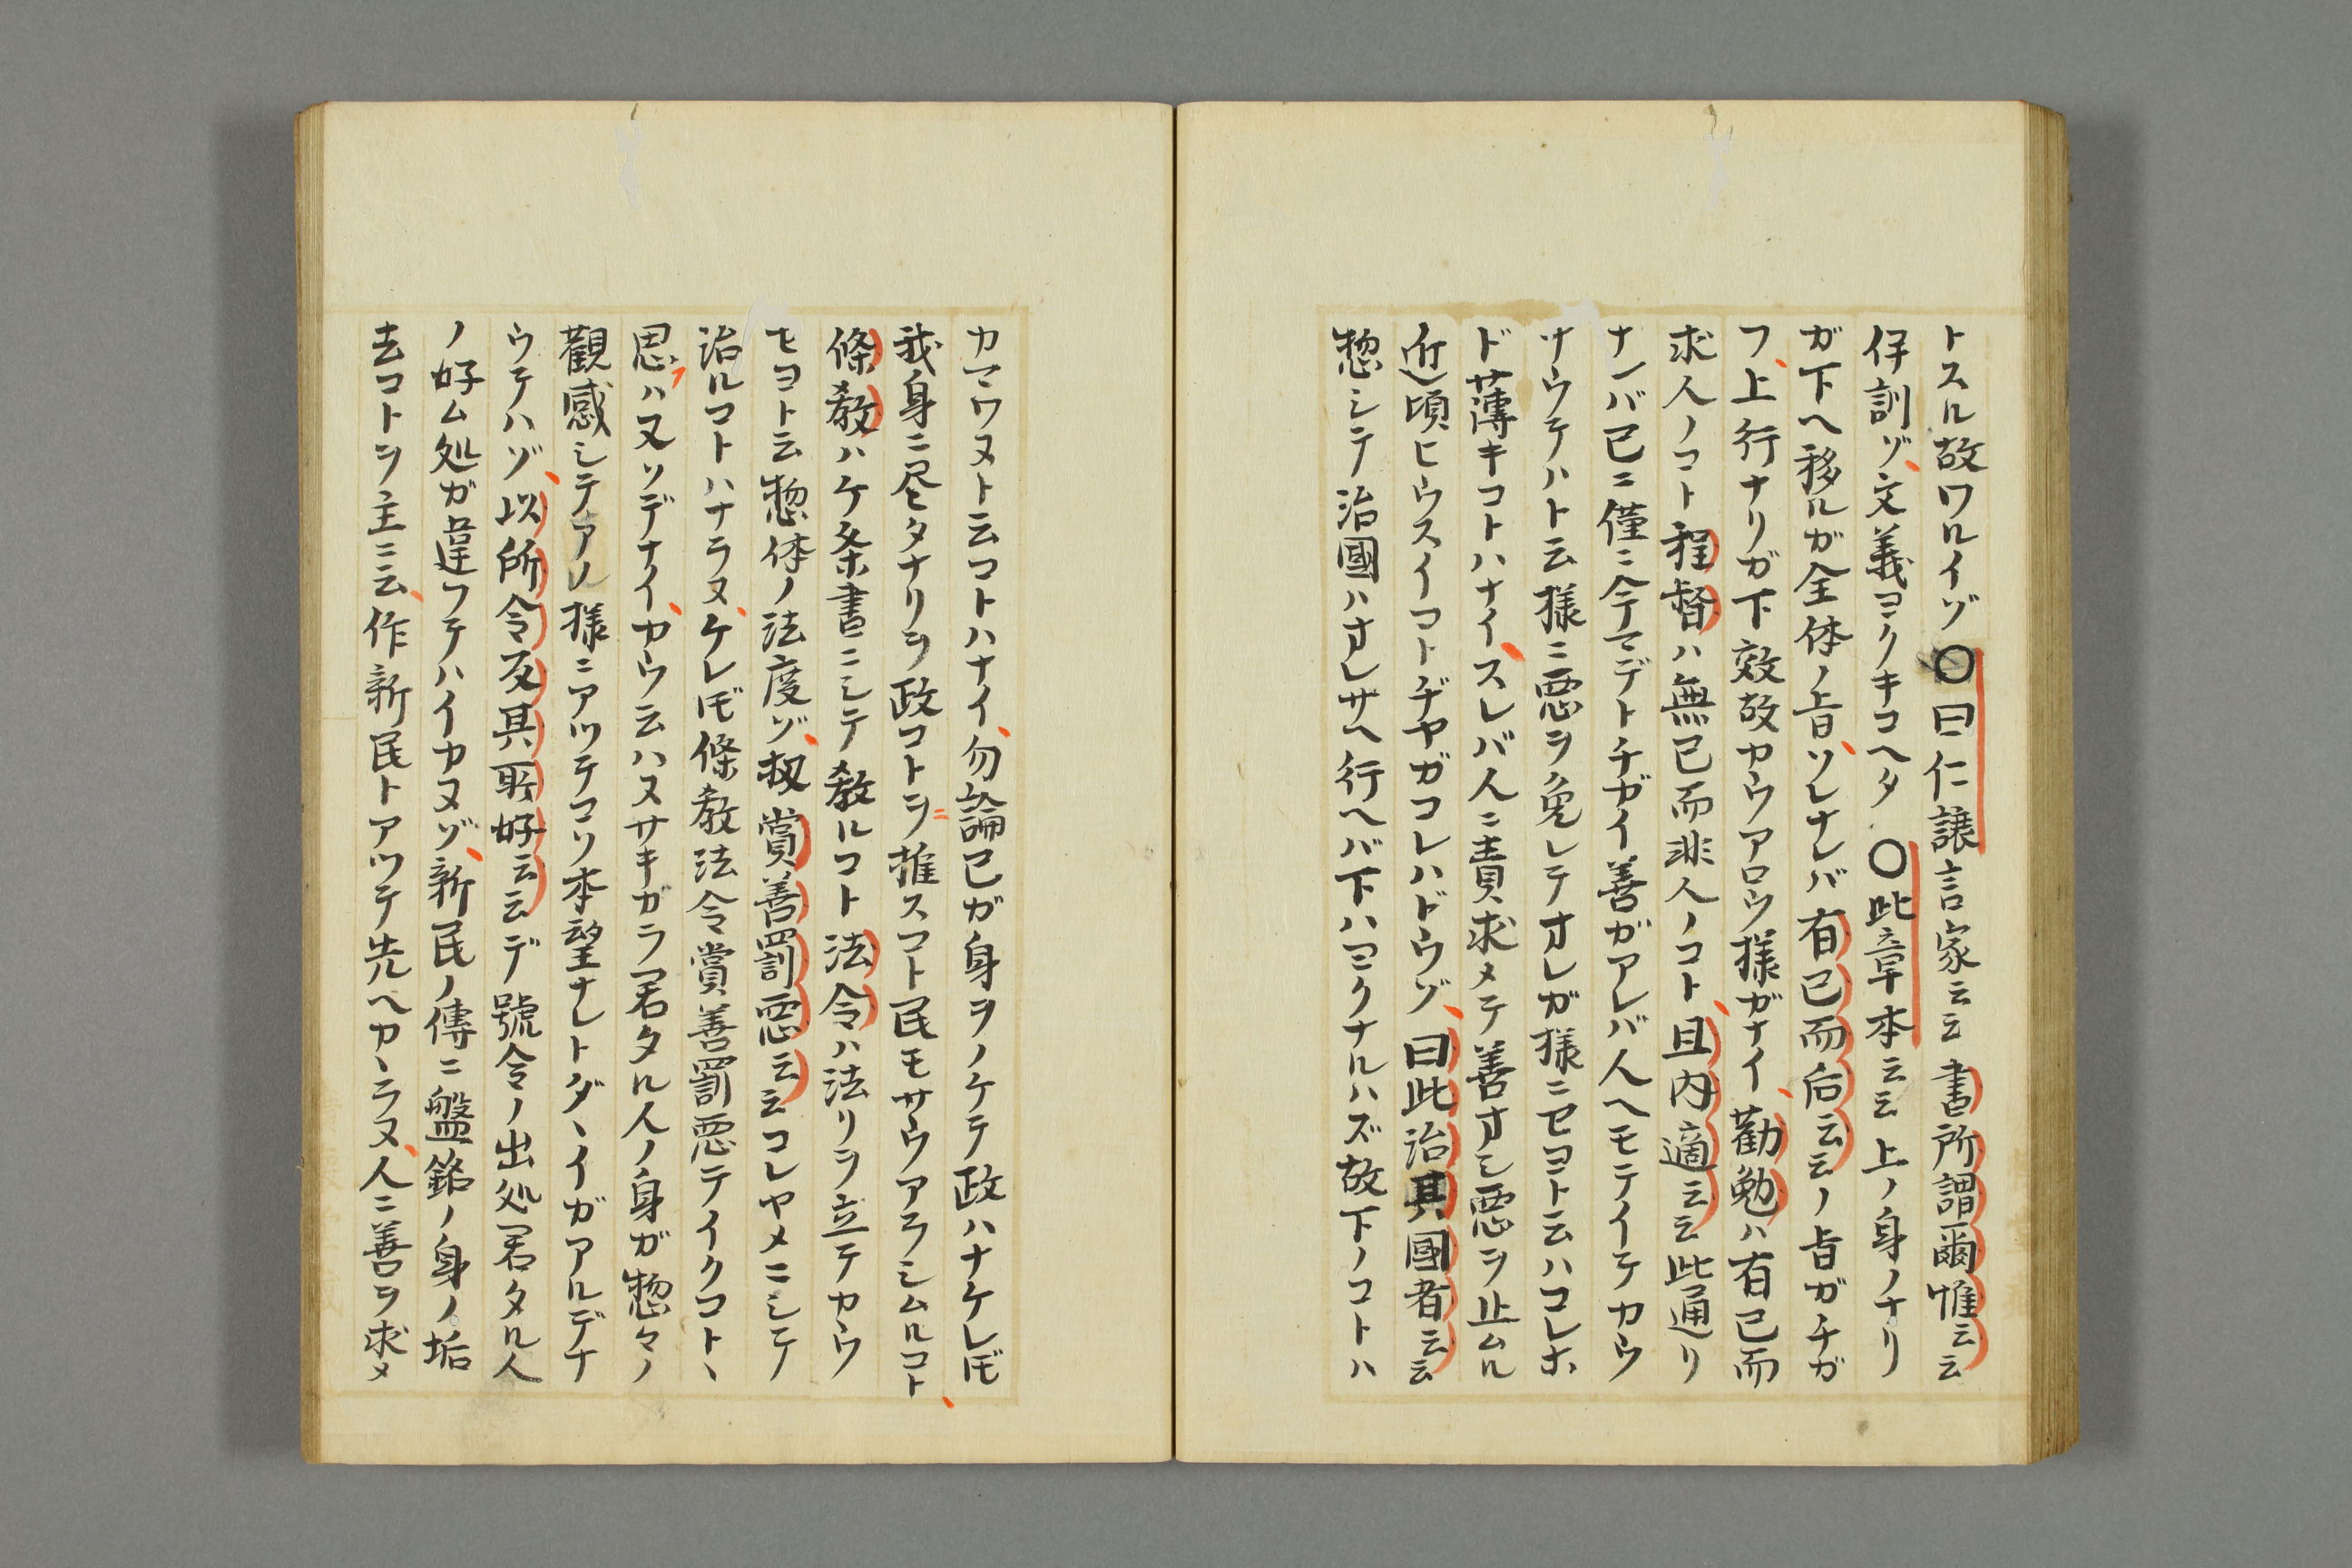 トスル故ワルイゾ〇曰仁譲言家云云書所謂爾惟云云
伊訓ゾ文義ヨクキコヘタ〇此章本云云上ノ身ノナリ
ガ下ヘ移ルガ全体ノ旨ソレナレバ有已而后云云ノ旨ガチガ
フ上行ナリガ下效故カウアロウ様ガナイ勸勉ハ有已而
求人ノコト程督ハ無已而非人ノコト且内適云云此通リ
ナンバ已ニ僅ニ今マデトチガイ善ガアレバ人ヘモテイテカウ
サウテハト云様ニ悪ヲ免レテオレガ様ニセヨト云ハコレホ
ド薄キコトハナイスレバ人ニ責求メテ善オシ悪ヲ止ムル
近頃ヒウスイコトヂヤガコレハドウゾ曰此治其國者云云
惣シテ治國ハオレサヘ行ヘバ下ハヨクナルハズ故下ノコトハ
カマワヌト云コトハナイ勿論已ガ身ヲノケテ政ハナケレ𪜈
我身ニ尽タナリヲ政コトヲ推スコト民モサウアラシムルコト
條教ハケ条書ニシテ教ルコト法令ハ法リヲ立テカウ
セヨト云惣体ノ法度ゾ扨賞善罰悪云云コレヤメニシテ
治ルコトハナラヌケレ𪜈條教法令賞善罰悪テイクコトヽ
思ハ又ソデナイカウ云ハヌサキガラ君タル人ノ身ガ惣々ノ
觀感シテアノ様ニアツテコソ本望ナレトダヽイガアルデナ
ウテハゾ以所令反其所好云云デ號令ノ出処君タル人
ノ好ム処ガ違フテハイカヌゾ新民ノ傳ニ盤銘ノ身ノ垢
去コトヲ主ニ云作新民トアツテ先ヘカヽラヌ人ニ善ヲ求メ